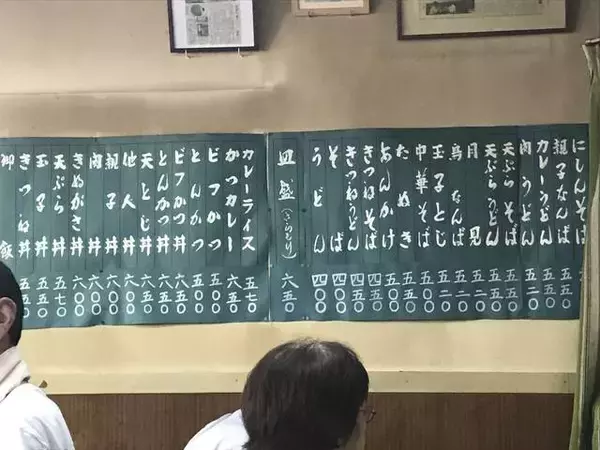 にしんそば
親子なんば 五五〇
カレーうどん 五五〇
肉うどん 五二〇
天ぷらそば 五五〇
天ぷらうどん 五五〇
月見 五二〇
鳥なんば 五二〇
玉子とじ 五二〇
中華そば 五五〇
たぬき 五〇〇
あんかけ
きつねそば 四五〇
きつねうどん 四五〇
そば 四〇〇
うどん 四〇〇
皿盛(さらもり) 六五〇
カレーライス 五七〇
かつカレー 六五〇
ビフかつ 五五〇
とんかつ 五〇〇
ビフかつ丼 六五〇
とんかつ丼 六〇〇
天とじ丼 六五〇
他人丼 六〇〇
親子丼 六〇〇
肉丼 六〇〇
きぬがさ丼 六〇〇
天ぷら丼 五七〇
玉子丼 五五〇
きつね丼 五五〇
御飯